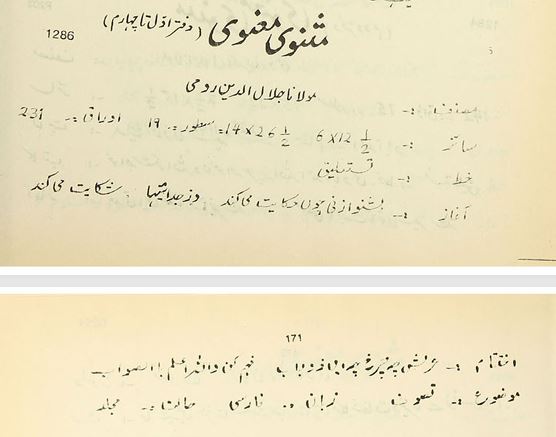 1286
مثنوی معنوی (دفتر اوّل تا چہارم)
مصنف :- مولانا جلال الدین رومی
سائز :- 6 x 12 ½ 14 x 26 ½ سطور :- 19 اوراق :- 231
خط :- نستعلیق
آغاز :- بشنو از نی چون حکایت می کند وز جدائیہا شکایت می کند
171
اختتام :- واللہ اعلم بالصواب
موضوع :- تصوف زبان :- فارسی حالت :- مجلد